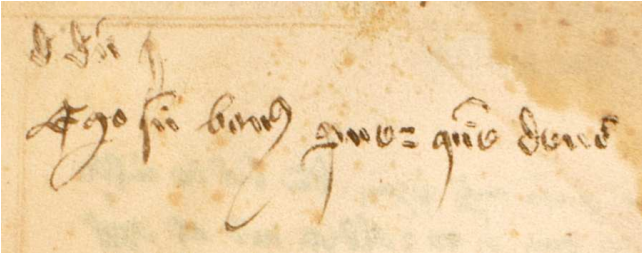 Ego su̅ bonꝰ puer qu̅e deus